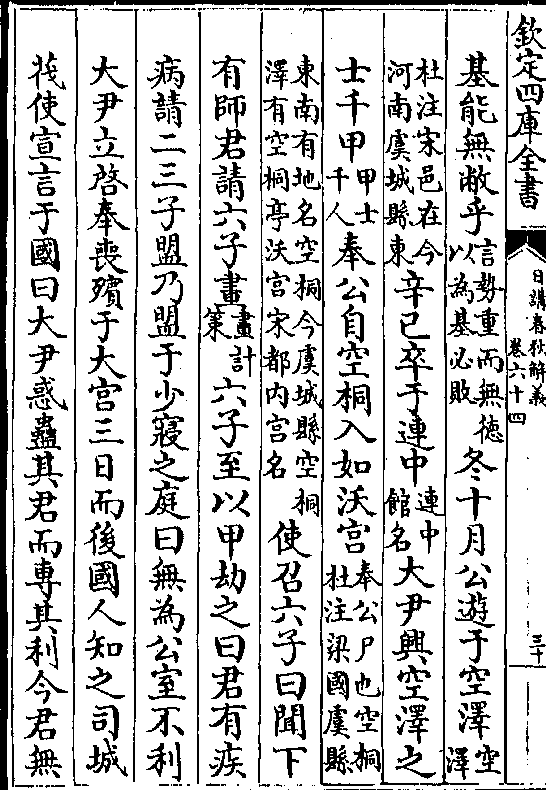 欽定四庫全書
日講春秋解義
卷六十四
三十
基能無敝乎言勢重而無德以為基必敗冬十月公遊于空澤空澤
杜注宋邑在今河南虞城縣東辛巳卒于連中連中館名大尹興空澤之
士千甲甲士千人奉公自空桐入如沃宮奉公尸也空桐杜注梁國虞縣
東南有地名空桐今虞城縣空桐澤有空桐亭沃宮宋都内宮名使召六子曰聞下
有師君請六子畫畫計策六子至以甲劫之曰君有疾
病請二三子盟乃盟于少寢之庭曰無為公室不利
大尹立啓奉喪殯于大宮三日而後國人知之司城
茷使宣言于國曰大尹惑蠱其君而專其利今君無